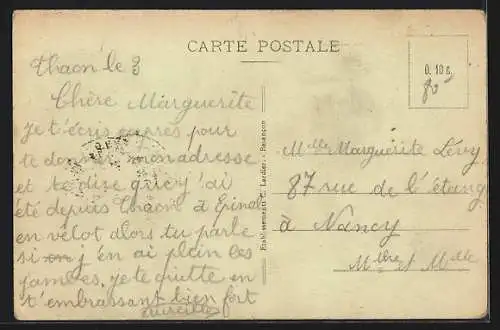 CARTE POSTALE
Thaon le 3
Chère Marguerite
je t'écris exprès pour
te donner mon adresse
et te dire que j'ai
été depuis Thaon à Epinal
en vélot alors tu parle
si j'en ai plein les
jambes. je te quitte en
t'embrassant bien fort
Etablissements C. Lardier - Besançon
0.10 c.
Mlle Marguerite Lévy
87 rue de l'étang
à Nancy
Mthe et Mlle